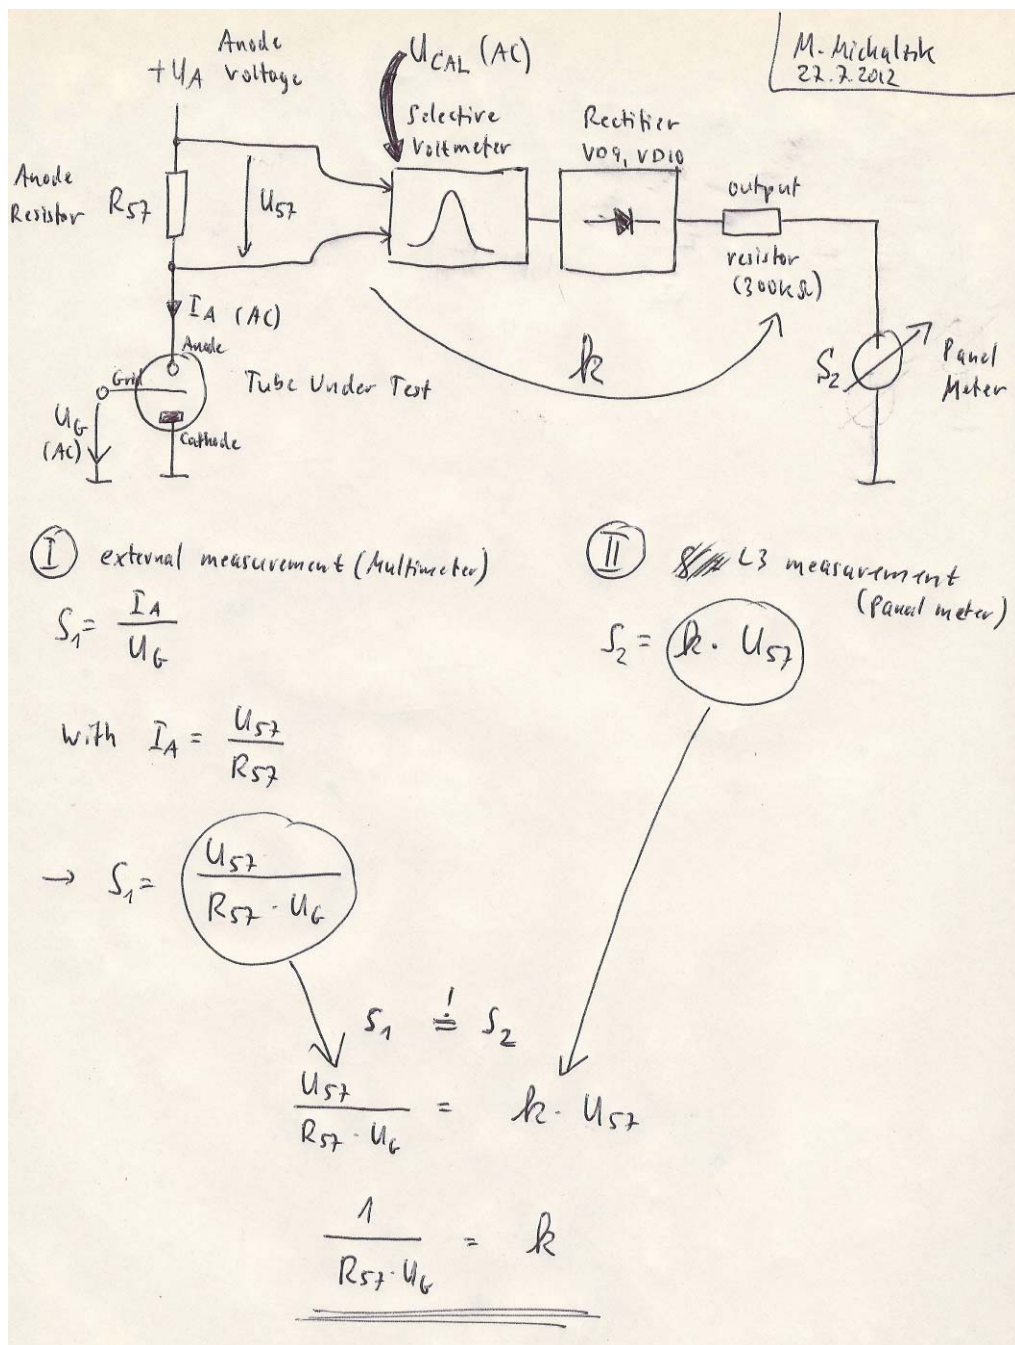 Anode
+UA Voltage
UCAL (AC)
M. Michalzik
27.7.2012
Selective
Voltmeter
Rectifier
VD9, VD10
Anode
Resistor
R57
U57
output
resistor
(300kΩ)
IA (AC)
Anode
Grid
Tube Under Test
UG
(AC)
Cathode
k
S2
Panel
Meter
I external measurement (Multimeter)
S1 = IA / UG
with IA = U57 / R57
→ S1 = U57 / R57 · UG
II L3 measurement
(Panel meter)
S2 = k · U57
S1 ≟ S2
U57 / R57 · UG = k · U57
1 / R57 · UG = k